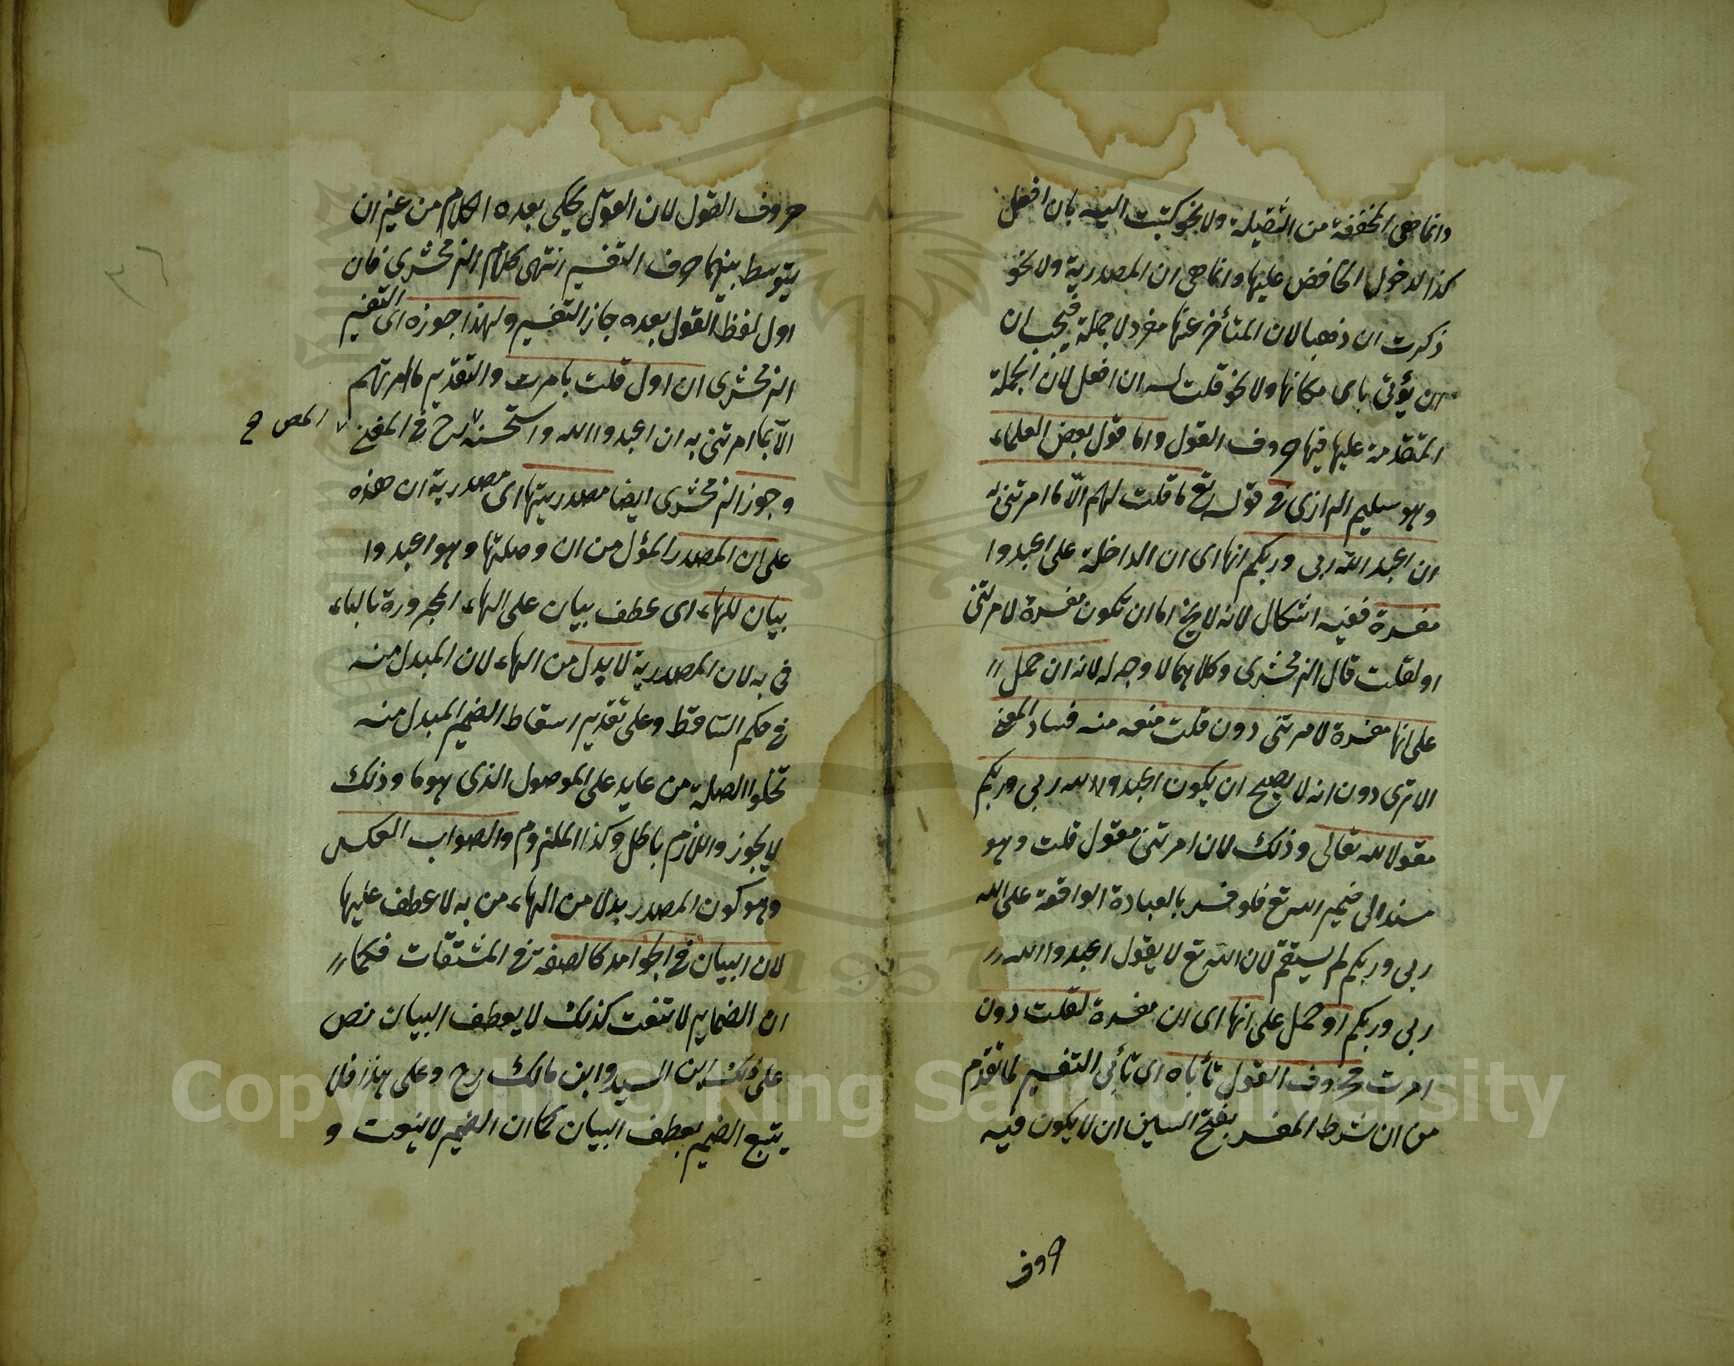 وانما هي المخففة من الثقيلة ولا نحو كتبت اليه بان افعل
كذا لدخول الخافض عليها وانما هي ان المصدرية ولا نحو
ذكرت ان ذهبا لان المتأخر عنها مفرد لا جملة فيجب ان
ان يؤتى باى مكانها ولا نحو قلت له ان افعل لان الجملة
المتقدمة عليها فيها حروف القول واما قول بعض العلماء
وهو سليم الرازى في قوله تع ما قلت لهم الا ما امرتنى به
ان اعبد الله ربى وربكم انها اى ان الداخلة على اعبدوا
مفسرة ففيه اشكال لانه لا يخ اما ان تكون مفسرة لامرتنى
او لقلت قال الزمخشرى وكلاهما لا وجه له لانه ان حمل
على انها مفسرة لامرتنى دون قلت منع منه فساد المعنى
الا ترى دون انه لا يصح ان يكون اعبدوا الله ربى وربكم
مقولا لله تعالى وذلك لان امرتنى مقول قلت وهو
مسند الى ضمير الله تع فلو فسر بالعبادة الواقعة على الله
ربى وربكم لم يستقم لان الله تع لا يقول اعبدوا الله
ربى وربكم او حمل على انها اى ان مفسرة لقلت دون
امرت فحروف القول تأباه اى تأبى التفسير لما تقدم
من ان شرط المفسر بفتح السين ان لا يكون فيه
حروف
حروف القول لان القول يحكى بعده الكلام من غير ان
يتوسط بينهما حرف التفسير انتهى كلام الزمخشرى فان
اول لفظ القول بعده جاز التفسير ولهذا جوزه اى التفسير
الزمخشرى ان اول قلت بامرت والتقدير ما امرتهم
الا بما امرتنى به ان اعبدوا الله واستحسنه رح في المغنى
المص
وجوز الزمخشرى ايضا مصدريتها اى مصدرية ان هذه
على ان المصدر المؤل من ان وصلتها وهو اعبدوا
بيان للهاء اى عطف بيان على الهاء المجرورة بالباء
في به لان المصدرية لا بدل من الهاء لان المبدل منه
في حكم الساقط وعلى تقدير اسقاط الضمير المبدل منه
تخلوا الصلة من عايد على الموصول الذى هو ما وذلك
لا يجوز واللازم باطل وكذا الملزوم والصواب العكس
وهو كون المصدر بدلا من الهاء من به لا عطف عليها
لان البيان في الجوامد كالصفة في المشتقات فكما
ان الضماير لا تنعت كذلك لا يعطف البيان نص
على ذلك ابن السيد وابن مالك رح وعلى هذا فلا
يتبع الضمير بعطف البيان كما ان الضمير لا ينعت و
Copyright © King Saud University
1957